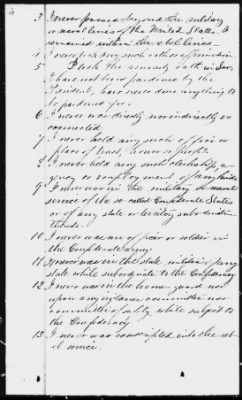 3 I never passed beyond the military
or naval lines of the United States. I
remained within the rebel lines.
4 I never took any such oath or affirmation
5 I took the amnesty oath in Sav.
I have not been pardoned by the
President, have never done anything to
be pardoned for.
6 I never was directly nor indirectly so
connected
7 I never held any such office or
place of trust, honor or profit.
8 I never held any such clerkship, a-
gency or employment of any kind
9 I never was in the military or naval
service of the so called Confederate States
or of any state or territory subordinate
thereto.
10 I never was an officer or soldier in
the Confederate army
11 I never was in the state militia of any
state while subordinate to the Confederacy
12 I never was in the home guard nor
upon a vigilance committee nor
committee of safety while subject to
the Confederacy
13 I never was conscripted into the reb-
el service.